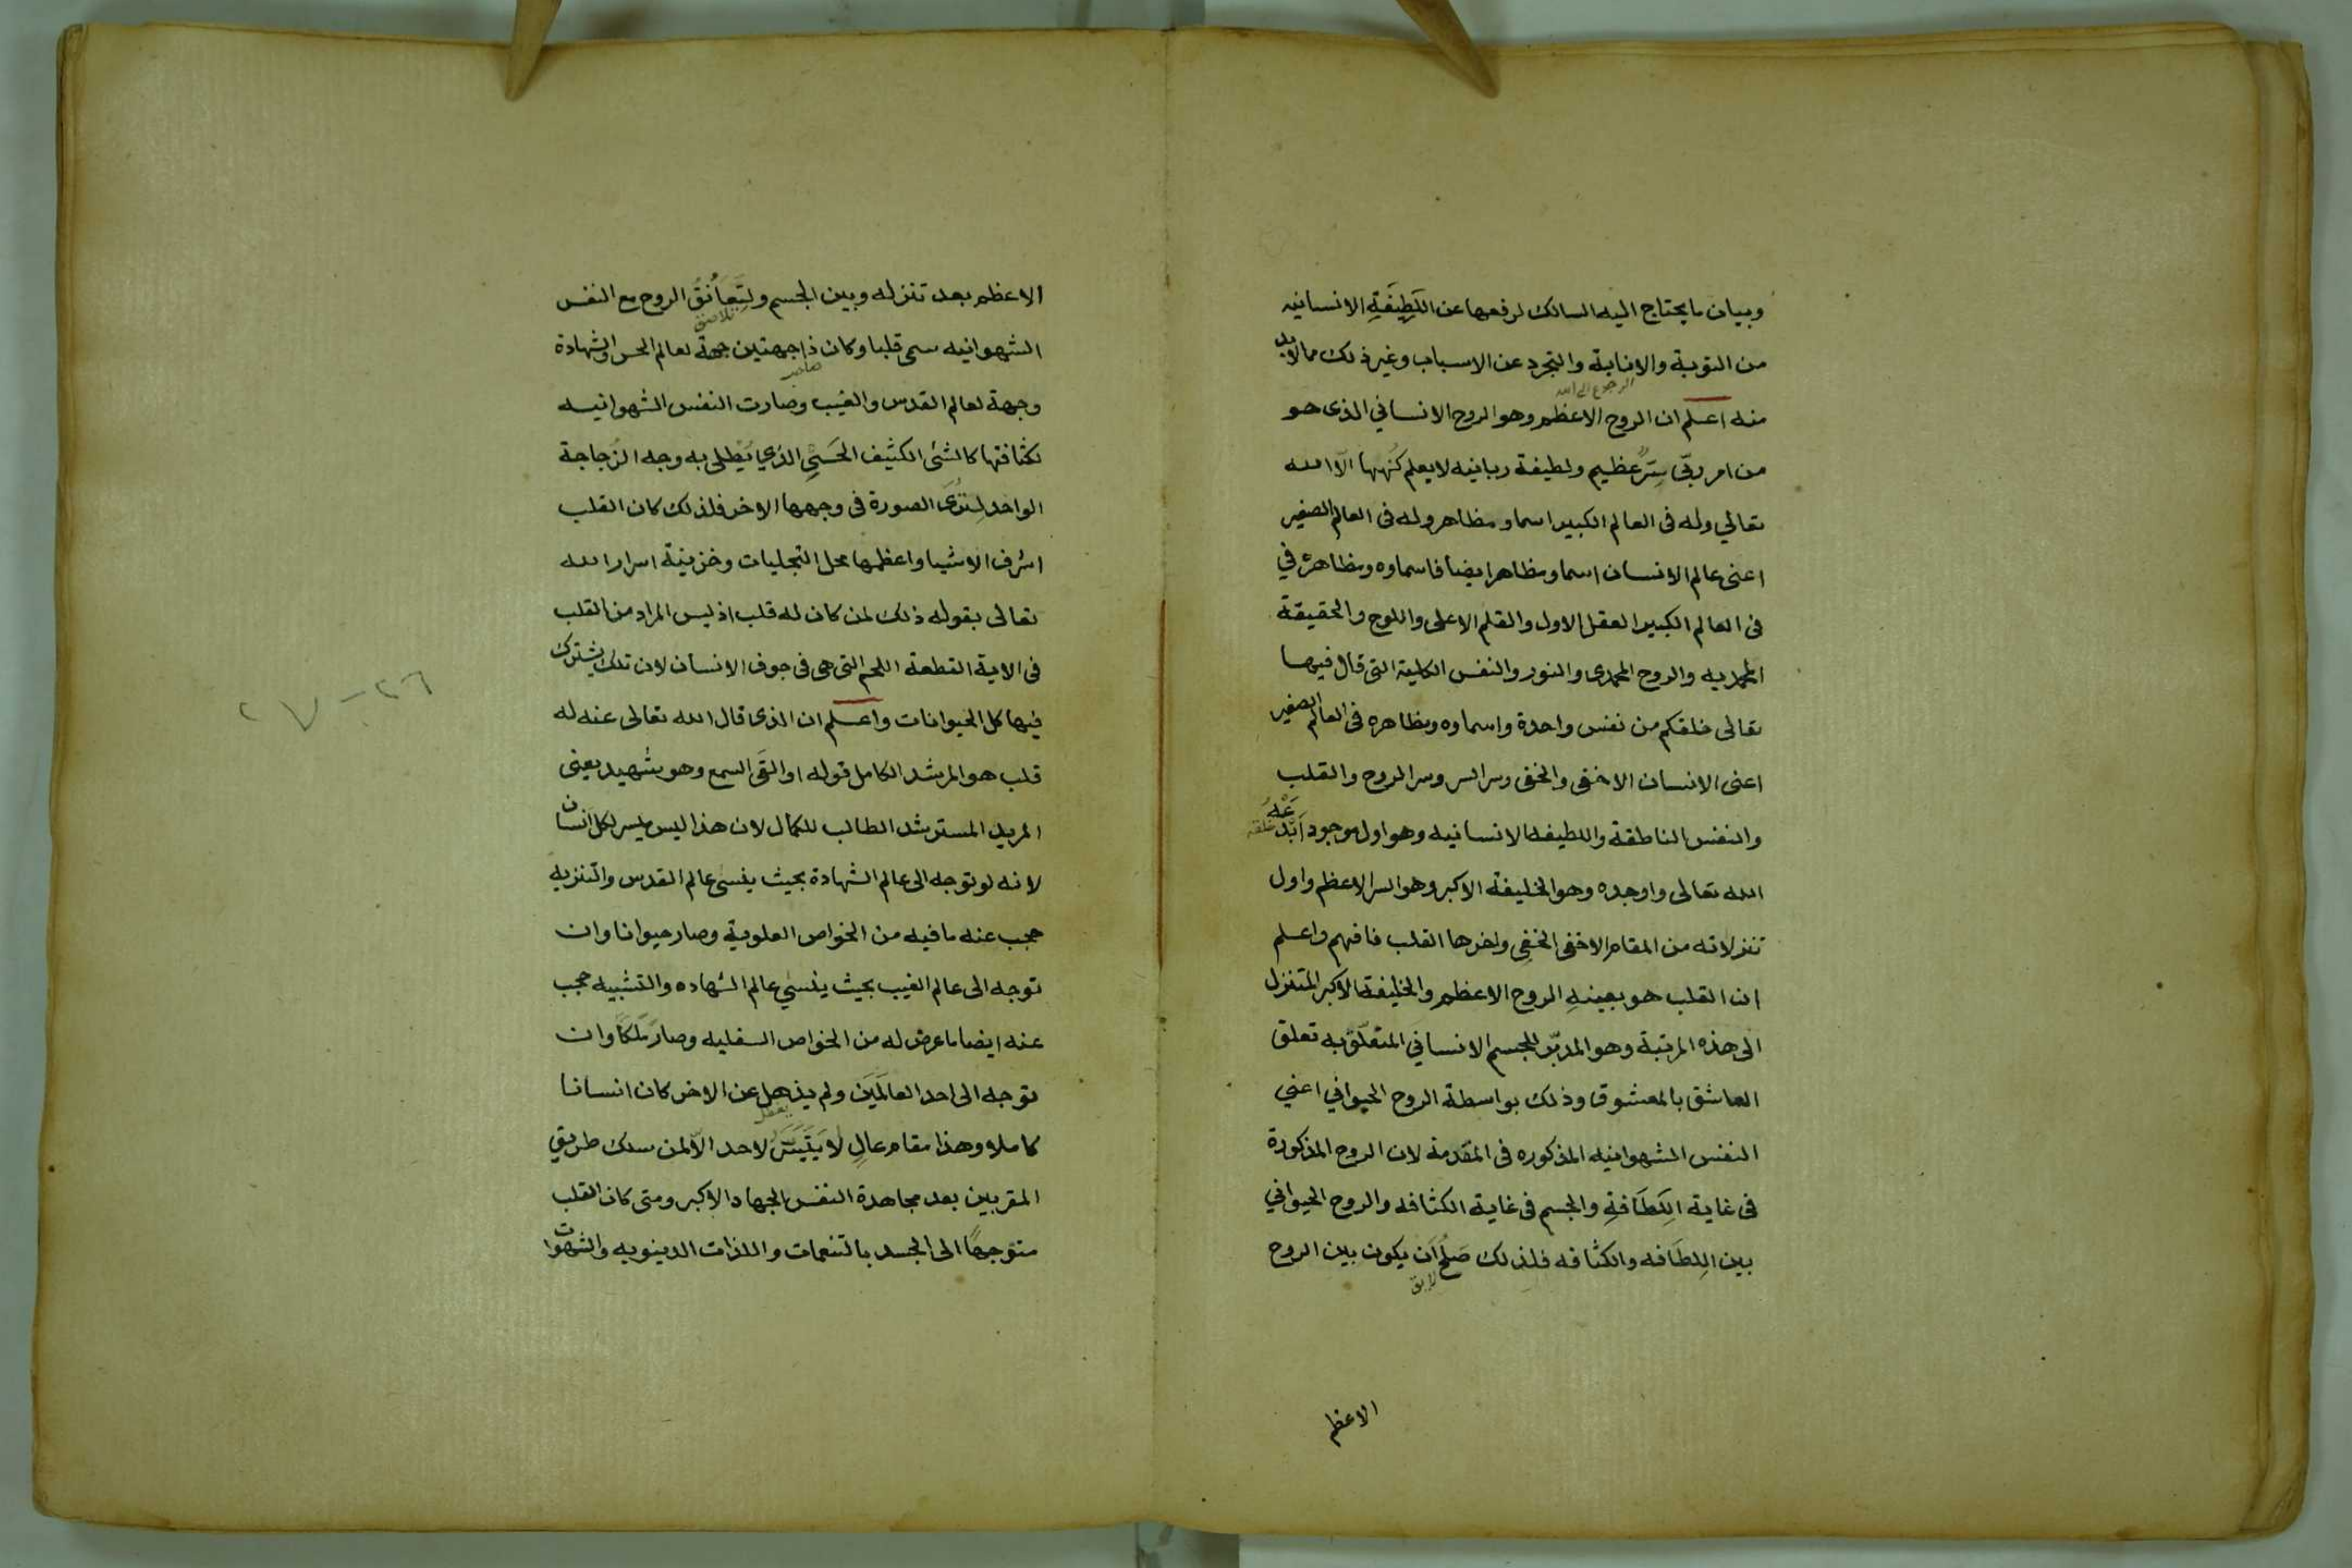 وبيان ما يحتاج اليه السالك لرفعها عن اللَطِيفَةِ الانسانيه
من التوبة والانابة والتجرد عن الاسباب وغير ذلك مما لابد
الرجوع الى الله
منه اعلم ان الروح الاعظم وهو الروح الانساني الذى هو
من امر ربّي سِرٌّ عظيم ولطيفة ربانيه لا يعلم كُنهها الّا الله
تعالي وله فى العالم الكبير اسما ومظاهر وله فى العالم الصغير
اعنى عالم الانسان اسما ومظاهر ايضا فاسماوه ومظاهرهُ في
فى العالم الكبير العقل الاول والقلم الاعلى واللوح والحقيقة
المحمديه والروح المحمدى والنور والنفس الكلية التى قال فيها
تعالى خلقكم من نفس واحدة واسماوه ومظاهره فى العالم الصغير
اعنى الانسان الاخفى والخفى وسر السر وسر الروح والقلب
والنفس الناطقة واللطيفه الانسانيه وهو اول موجود اَبْدَعَهُ
خلقه
الله تعالى واوجده وهو الخليفة الاكبر وهو السر الاعظم واول
تنزلاته من المقام الاخفى الخفِى واخرها القلب فافهم واعلم
ان القلب هو بعينهِ الروح الاعظم والخليفة الاكبر المتنزل
الى هذه المرتبة وهو المدبّر للجسم الانساني المتعلّق به تعلق
العاشق بالمعشوق وذلك بواسطة الروح الحيواني اعني
النفس الشهوانيه المذكوره فى المقدمة لان الروح المذكورة
فى غاية اللَطَافةِ والجسم فى غاية الكثافه والروح الحيواني
بين اللِطَافه والكثافه فلذلك صَلُحَ اَن يكون بين الروح
لايق
الاعظم
الاعظم بعد تنزله وبين الجسم ولِتَعَانُقُ الروح مع النفس
تلاصق
الشهوانيه سمى قلبا وكان ذا جهتين جهة لعالم الحس والشهادة
صاحب
وجهة لعالم القدس والغيب وصارت النفس الشهوانيه
لكثافتها كالشئ الكثيف الحَسِّيِ الذي يُطْلى به وجه الزُجاجة
الواحد لِتُرَىَ الصورة فى وجهها الاخر فلذلك كان القلب
اشرف الاشيا واعظمها محل التجليات وخزينة اسرار الله
تعالى بقوله ذلك لمن كان له قلب اذ ليس المراد من القلب
فى الاية القطعة اللحم التى هى فى جوف الانسان لان تلك يشترك
فيها كل الحيوانات واعلم ان الذى قال الله تعالى عنه له
قلب هو المرشد الكامل قوله او القَى السمع وهو شهيد يعنى
المريد المسترشد الطالب للكمال لان هذا ليس ميسر لكل انسان
لانه لو توجه الى عالم الشهادة بحيث ينسى عالم القدس والتنزيه
حجب عنه ما فيه من الخواص العلوية وصار حيوانا وان
توجه الى عالم الغيب بحيث ينسي عالم الشهاده والتشبيه حجب
عنه ايضا ما عرض له من الخواص السفليه وصار مَلَكًا وان
توجه الى احد العالَمَين ولم يذهل عن الاخر كان انسانا
يغفل
كاملا وهذا مقام عالٍ لا يَتَيَسَّر لاحد الّا لمن سلك طريق
المقربين بعد مجاهدة النفس الجهاد الاكبر ومتى كان القلب
متوجهًا الى الجسد بالتنعمات واللذات الدينويه والشهوات